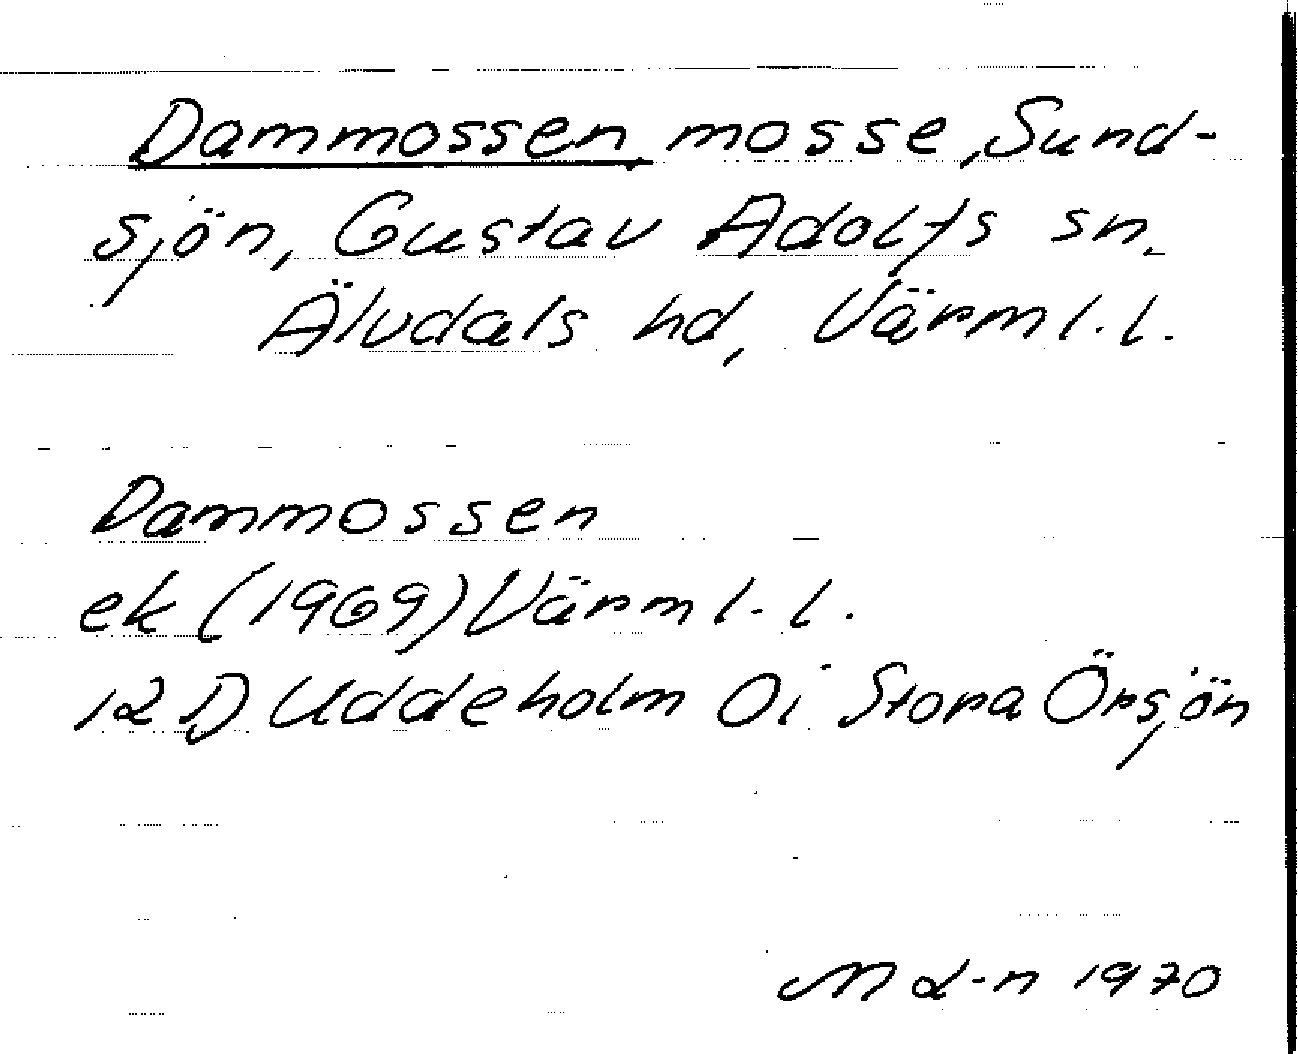 Dammossen, mosse, Sund-
sjön, Gustav Adolfs sn.
Älvdals hd, Värml. l.
Dammossen
ek (1969) Värml. l.
12 D Uddeholm 0i Stora Örsjön
1970